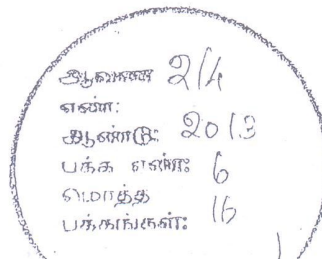 ஆவண 214
எண்:
ஆண்டு: 2013
பக்க எண்: 6
மொத்த 16
பக்கங்கள்: